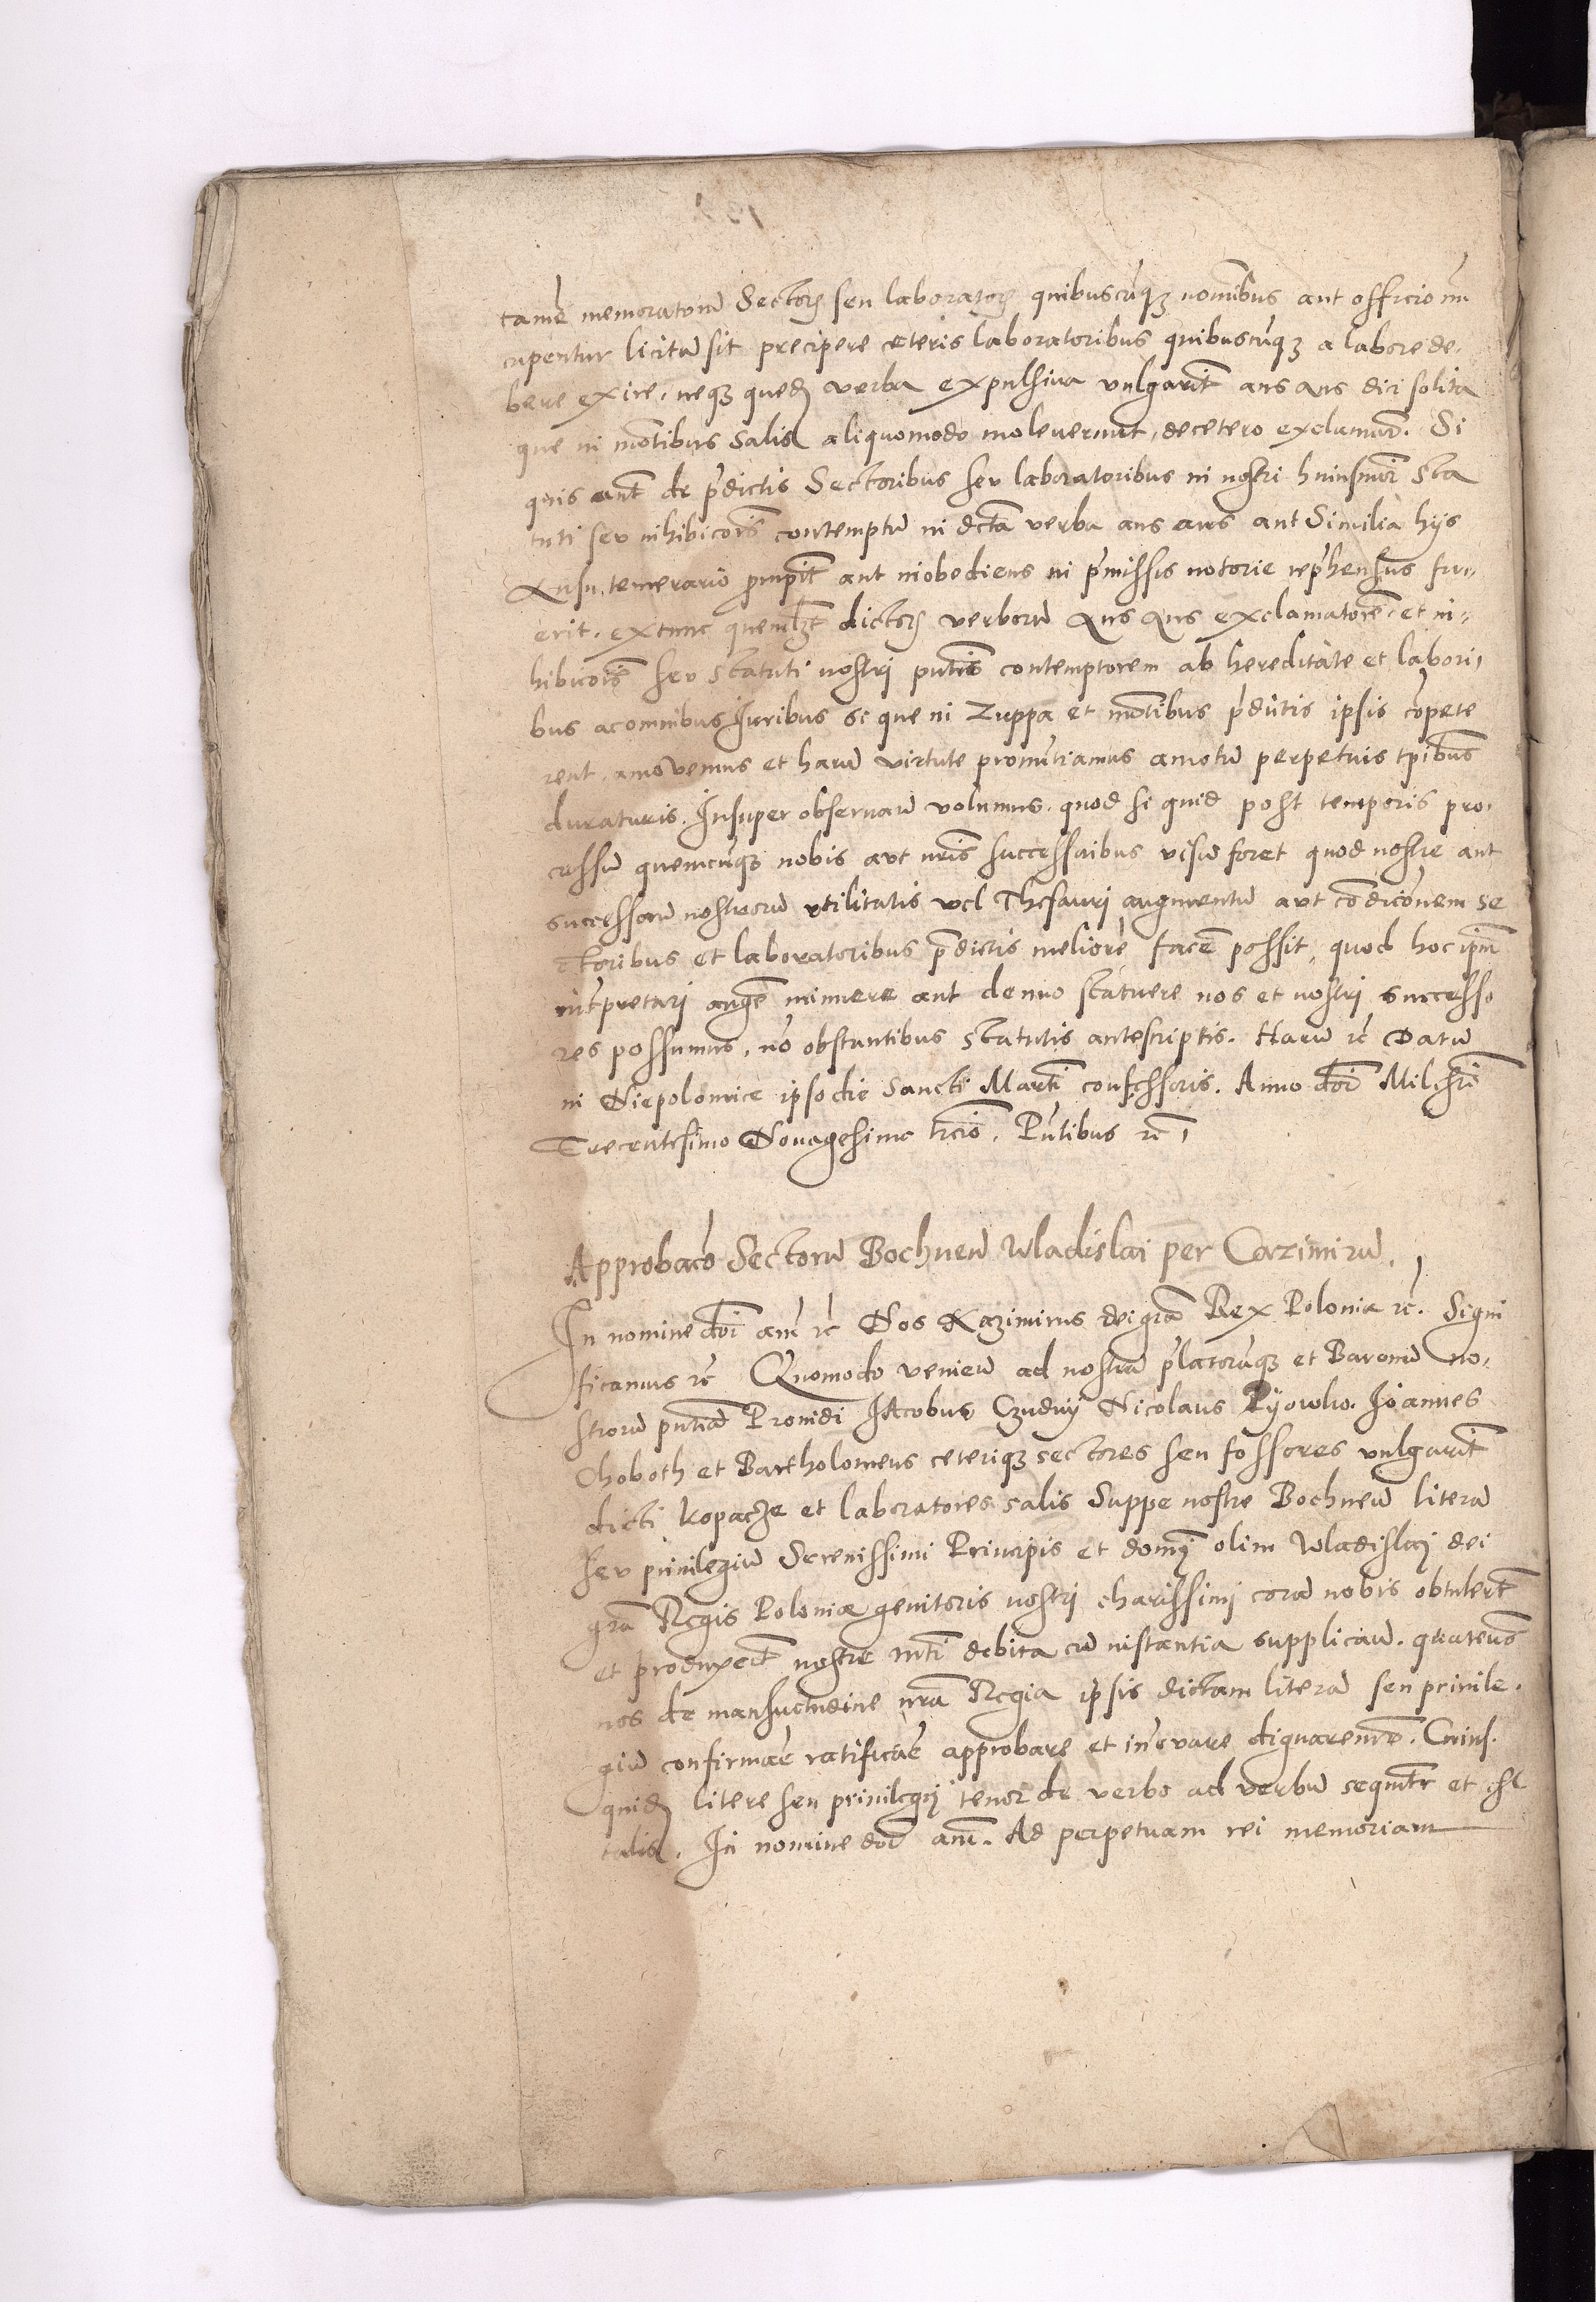 tamẽ memoratorũ Sectorꝝ seu laboratorꝝ quibuscũqꝫ nominibus aut officio nũ
cupentur licitũ sit precipere ceteris laboratoribus quibuscũqꝫ a labore de-
bere exire, neqꝫ quedã verba expulsiua vulgarit̃ aus aus dici solita
que in mõtibus salis aliquomodo inoleuerunt, decetero exclament̃. Si
quis aut̃ de p̃dictis Sectoribus seu laboratoribus in nostri huiusmõi sta
tuti seu inhibicõis contemptũ in dicta verba aus aus aut Similia hijs
Ausu temerario prorupit̃ aut inobediens in p̃missis notorie rep̃hensus fu-
erit. extunc quemlꝫt dictorꝝ verborũ Aus Aus exclamatorẽ, et in-
hibicõis seu statuti nostri pñtis contemptorem ab hereditate et labori-
bus ac omnibus Juribus si que in Zuppa et mõtibus p̃dictis ipsis cõpete
rent, amovemus et harũ virtute pronũtiamus amotũ perpetuis tp̃ibus
duraturis. Insuper obseruari volumus. quod si quid post temporis pro-
cessũ quemcũqꝫ nobis aut nr̃is successoribus visũ foret quod nostre aut
successorũ nostrorũ vtilitatis vel Thesauri augmentũ aut cõdicõnem se
ctoribus et laboratoribus p̃dictis meliorẽ facẽ possit, quod hoc ipm̃
interpretari augẽ minuere aut denuo statuere nos et nostri successo
res possumus, nõ obstantibus statutis antescriptis. Harũ ꝛc̃ Datũ
in Niepolomice ipso die Sancti Martĩ confessoris. Anno dñi Milesĩo
Trecentesimo Nonagesimo t̃cio. Pñtibus ꝛc̃
Approbacõ Sectorũ Bochneñ Wladislai per Cazimirũ.
In nomine dñi amẽ ꝛc̃ Nos Kazimirus dei gr̃a Rex Poloniæ ꝛc̃. Signi
ficamus ꝛc̃ Quomodo venieñ ad nostrã p̃latorũqꝫ et Baronũ no-
strorũ pñtiã Prouidi Jacobus Czudny Nicolaus Joannes
Choboth et Bartholomeus ceteriqꝫ sectores seu fossores vulgarit̃
dicti kopacze et laboratores salis Suppe nostre Bochneñ literã
seu priuilegiũ Serenissimi Principis et domĩ olim Wladislaj dei
gr̃a Regis Poloniæ genitoris nostrj charissimj corã nobis obtulert̃
et produxert̃ nostre mt̃i debita cũ instantia supplicãn. quatenus
nos de mansuetudine nr̃a Regia ipsis dictam literã seu priuile-
giũ confirmãe ratificãe approbare et innovare dignaremur̃. Cuius
quidẽ litere seu priuilegij tenor de verbo ad verbũ sequit̃r et est
talis. In nomine dñi amẽ. Ad perpetuam rei memoriam